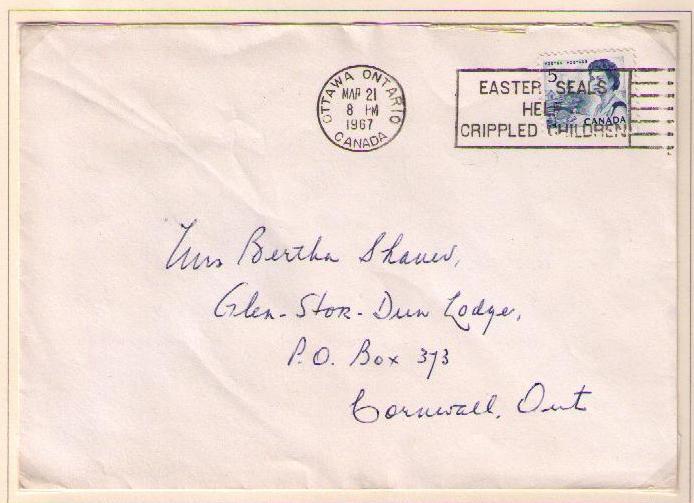 OTTAWA ONTARIO
MAR 21
8 PM
1967
CANADA
POSTES POSTAGE
5
EASTER SEALS
HELP
CRIPPLED CHILDREN
CANADA
Mrs Bertha Shaver,
Glen-Stor-Dun Lodge,
P.O. Box 373
Cornwall, Ont